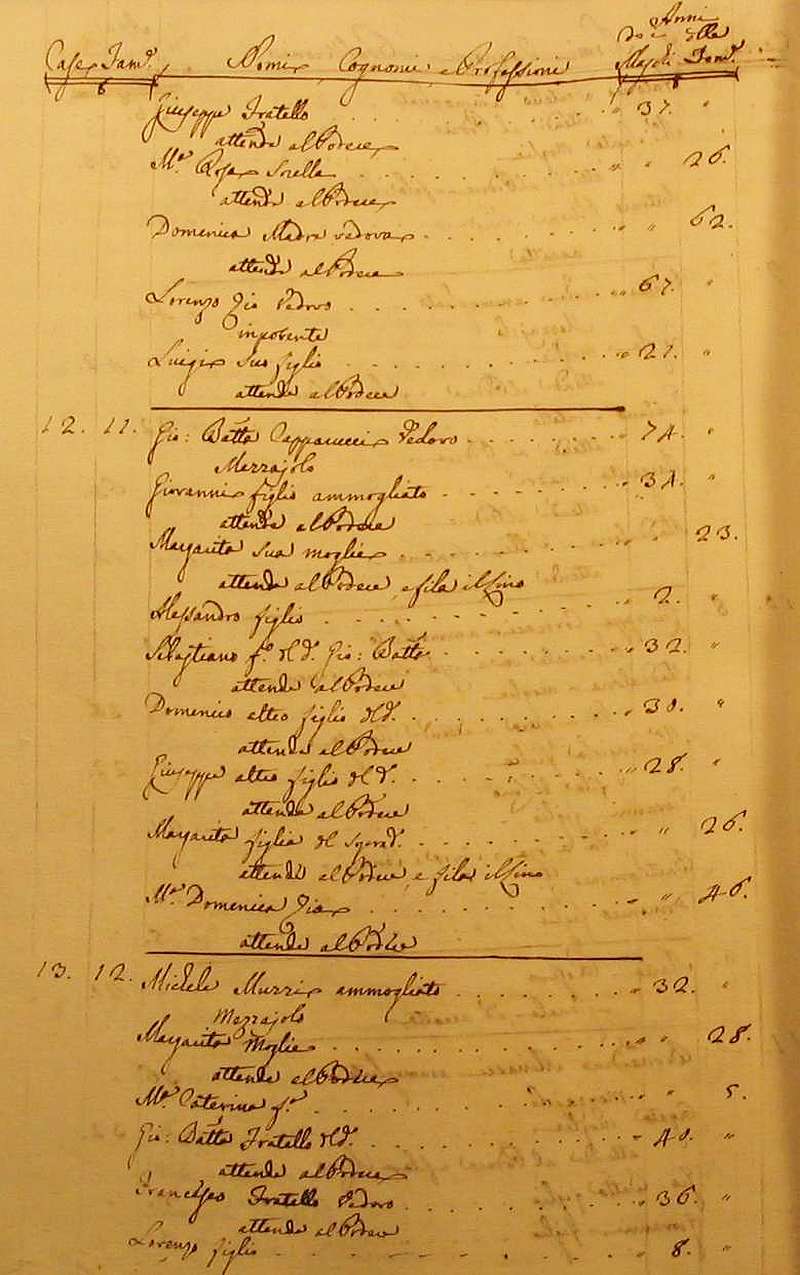 Anni
Case, Fam.e Nomi, Cognomi, e Professioni Maschi Fem.e
Giuseppe Fratello 37. "
attende al Podere
M.a Rosa Sorella " 26.
attende al Podere
Domenica Madre vedova " 62.
attende al Podere
Lorenzo Zio Vedovo 67. "
impotente
Luigi suo figlio 21. "
attende al Podere
12. 11. Gio: Batta Vedovo 74. "
Mezzajolo
Giovanni figlio ammogliato 34. "
attende al Podere
Margarita sua moglie " 23.
attende al Podere, e fila il Lino
Alessandro figlio 2. "
Sebastiano f.o del d.o Gio: Batta 32. "
attende al Podere
Domenico altro figlio del d.o 30. "
attende al Podere
Giuseppe altro figlio del d.o 28. "
attende al Podere
Margarita figlia del " 26.
attende al Podere, e fila il Lino
M.a Domenica Zia " 46.
attende al Podere
13. 12. Michele Murri ammogliato 32. "
Mezzajolo
Margarita Moglie " 28.
attende al Podere
M.a Caterina f.a " 5.
Gio: Batta Fratello del d.o 40. "
attende al Podere
Francesco Fratello Vedovo 36. "
attende al Podere
Lorenzo figlio 8. "